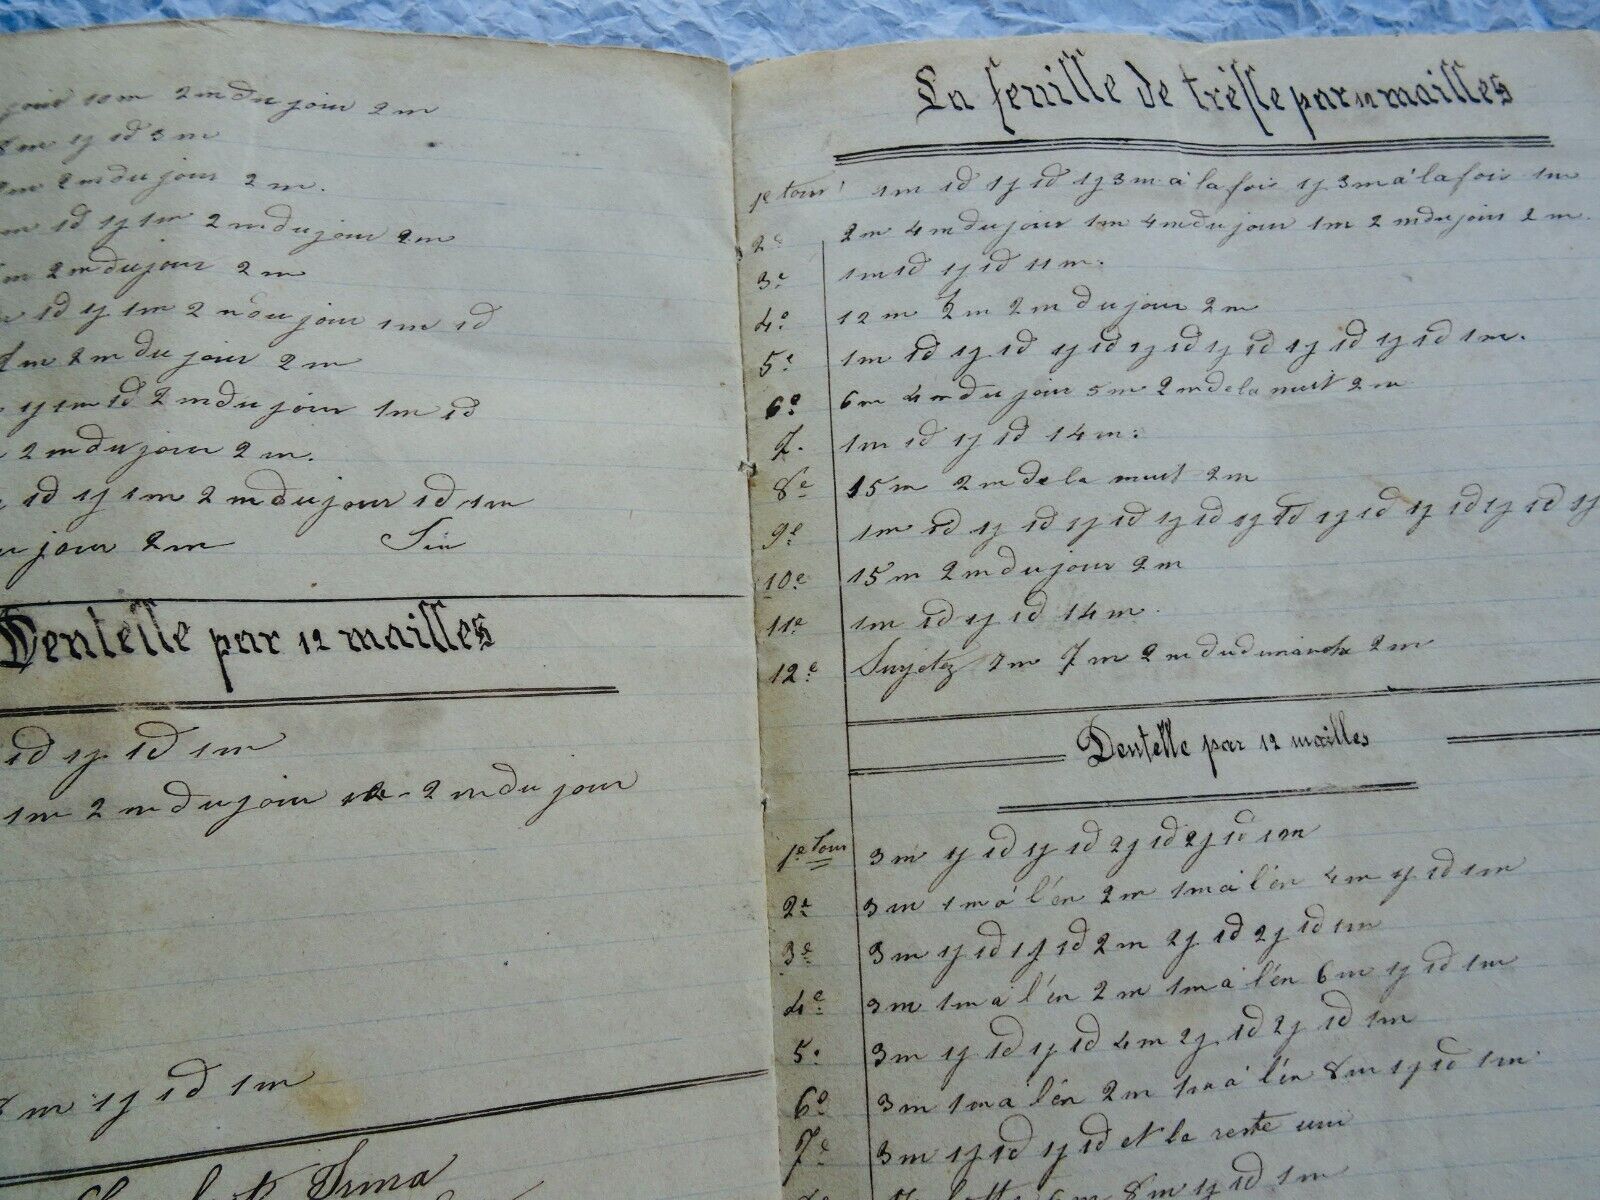 10m 2m du jour 2m
8m 1j 1d 3m
2m du jour 2m.
1d 1j 1m 2m du jour 2m
2m du jour 2m
1d 1j 1m 2 du jour 1m 1d
2m du jour 2m
1j 1m 1d 2m du jour 1m 1d
2m du jour 2m.
1d 1j 1m 2m du jour 1d 1m
jour 2m Fin
Dentelle par 12 mailles
1d 1j 1d 1m
1m 2m du jour 2m du jour
8m 1j 1d 1m
Irma
La feuille de tréfle par 12 mailles
1e tour 1m 1d 1j 1d 1j 3m à la fois 1j 3m à la fois 1m
2e 2m 4m du jour 1m 4m du jour 1m 2m du jour 2m.
3e 1m 1d 1j 1d 11m.
4e 12m 2m du jour 2m
5e 1m 1d 1j 1d 1j 1d 1j 1d 1j 1d 1j 1d 1j 1d 1m.
6e 6m 4m du jour 5m 2m de la nuit 2m
7. 1m 1d 1j 1d 14m.
8e 15m 2m de la nuit 2m
9e 1m 1d 1j 1d 1j 1d 1j 1d 1j 1d 1j 1d 1j 1d 1j 1d 1j
10e 15m 2m du jour 2m
11e 1m 1d 1j 1d 14m.
12e Surjetez 7m 2m du dimanche 2m
Dentelle par 12 mailles
1e Tour 3m 1j 1d 1j 1d 2j 1d 2j 1d 1m
2e 3m 1m à l'én 2m 1m à l'én 4m 1j 1d 1m
3e 3m 1j 1d 1j 1d 2m 2j 1d 2j 1d 1m
4e 3m 1m à l'én 2m 1m à l'én 6m 1j 1d 1m
5. 3m 1j 1d 1j 1d 4m 2j 1d 2j 1d 1m
6e 3m 1m à l'én 2m 1m à l'én 8m 1j 1d 1m
7e 3m 1j 1d 1j 1d et le reste uni
8m 1j 1d 1m